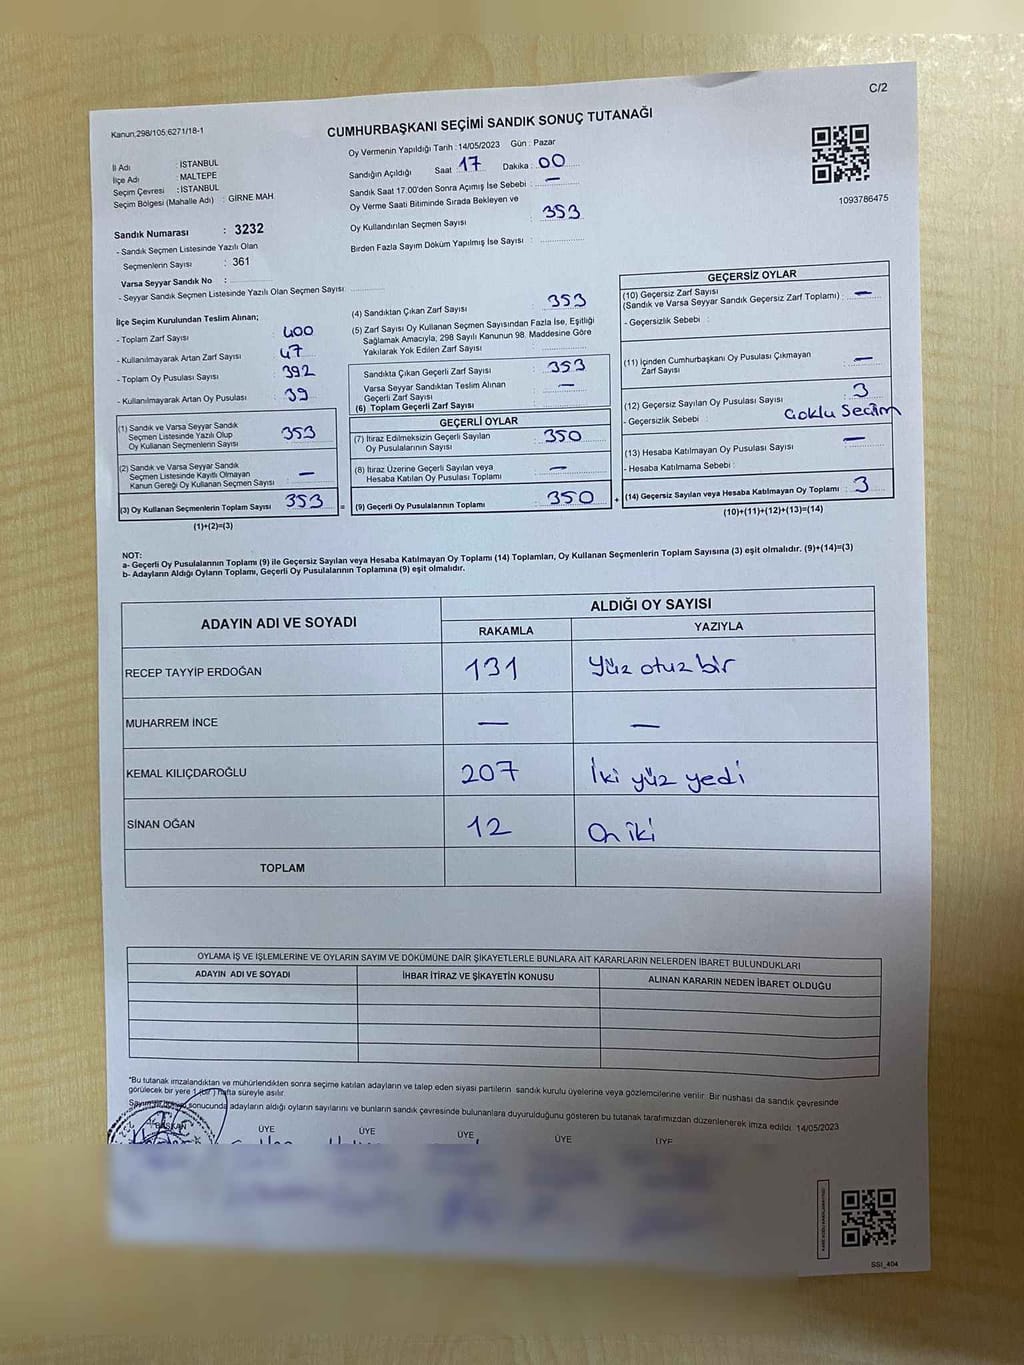 C/2
Kanun;298/105;6271/18-1
CUMHURBAŞKANI SEÇİMİ SANDIK SONUÇ TUTANAĞI
İl Adı : İSTANBUL
İlçe Adı : MALTEPE
Seçim Çevresi : İSTANBUL
Seçim Bölgesi (Mahalle Adı) : GİRNE MAH.
Sandık Numarası : 3232
- Sandık Seçmen Listesinde Yazılı Olan
Seçmenlerin Sayısı : 361
Varsa Seyyar Sandık No :
- Seyyar Sandık Seçmen Listesinde Yazılı Olan Seçmen Sayısı:
Oy Vermenin Yapıldığı Tarih : 14/05/2023 Gün : Pazar
Sandığın Açıldığı Saat 17 Dakika : 00
Sandık Saat 17:00'den Sonra Açımış İse Sebebi : —
Oy Verme Saati Bitiminde Sırada Bekleyen ve
Oy Kullandırılan Seçmen Sayısı 353
Birden Fazla Sayım Döküm Yapılmış İse Sayısı :
1093786475
İlçe Seçim Kurulundan Teslim Alınan;
- Toplam Zarf Sayısı : 400
- Kullanılmayarak Artan Zarf Sayısı : 47
- Toplam Oy Pusulası Sayısı : 392
- Kullanılmayarak Artan Oy Pusulası : 39
(1) Sandık ve Varsa Seyyar Sandık
Seçmen Listesinde Yazılı Olup
Oy Kullanan Seçmenlerin Sayısı : 353
(2) Sandık ve Varsa Seyyar Sandık
Seçmen Listesinde Kayıtlı Olmayan
Kanun Gereği Oy Kullanan Seçmen Sayısı : —
(3) Oy Kullanan Seçmenlerin Toplam Sayısı : 353 =
(1)+(2)=(3)
(4) Sandıktan Çıkan Zarf Sayısı : 353
(5) Zarf Sayısı Oy Kullanan Seçmen Sayısından Fazla İse, Eşitliği
Sağlamak Amacıyla; 298 Sayılı Kanunun 98. Maddesine Göre
Yakılarak Yok Edilen Zarf Sayısı :
Sandıkta Çıkan Geçerli Zarf Sayısı : 353
Varsa Seyyar Sandıktan Teslim Alınan
Geçerli Zarf Sayısı : —
(6) Toplam Geçerli Zarf Sayısı :
GEÇERLİ OYLAR
(7) İtiraz Edilmeksizin Geçerli Sayılan
Oy Pusulalarının Sayısı : 350
(8) İtiraz Üzerine Geçerli Sayılan veya
Hesaba Katılan Oy Pusulası Toplamı : —
(9) Geçerli Oy Pusulalarının Toplamı : 350 +
GEÇERSİZ OYLAR
(10) Geçersiz Zarf Sayısı
(Sandık ve Varsa Seyyar Sandık Geçersiz Zarf Toplamı) : —
- Geçersizlik Sebebi :
(11) İçinden Cumhurbaşkanı Oy Pusulası Çıkmayan
Zarf Sayısı : —
(12) Geçersiz Sayılan Oy Pusulası Sayısı : 3
- Geçersizlik Sebebi : Çoklu Seçim
(13) Hesaba Katılmayan Oy Pusulası Sayısı : —
- Hesaba Katılmama Sebebi :
(14) Geçersiz Sayılan veya Hesaba Katılmayan Oy Toplamı : 3
(10)+(11)+(12)+(13)=(14)
NOT:
a- Geçerli Oy Pusulalarının Toplamı (9) ile Geçersiz Sayılan veya Hesaba Katılmayan Oy Toplamı (14) Toplamları, Oy Kullanan Seçmenlerin Toplam Sayısına (3) eşit olmalıdır. (9)+(14)=(3)
b- Adayların Aldığı Oyların Toplamı, Geçerli Oy Pusulalarının Toplamına (9) eşit olmalıdır.
ADAYIN ADI VE SOYADI ALDIĞI OY SAYISI
RAKAMLA YAZIYLA
RECEP TAYYİP ERDOĞAN 131 Yüz otuz bir
MUHARREM İNCE — —
KEMAL KILIÇDAROĞLU 207 İki yüz yedi
SİNAN OĞAN 12 On iki
TOPLAM
OYLAMA İŞ VE İŞLEMLERİNE VE OYLARIN SAYIM VE DÖKÜMÜNE DAİR ŞİKAYETLERLE BUNLARA AİT KARARLARIN NELERDEN İBARET BULUNDUKLARI
ADAYIN ADI VE SOYADI İHBAR İTİRAZ VE ŞİKAYETİN KONUSU ALINAN KARARIN NEDEN İBARET OLDUĞU
*Bu tutanak imzalandıktan ve mühürlendikten sonra seçime katılan adayların ve talep eden siyasi partilerin sandık kurulu üyelerine veya gözlemcilerine verilir. Bir nüshası da sandık çevresinde
görülecek bir yere 1 (bir) hafta süreyle asılır.
sonucunda adayların aldığı oyların sayılarını ve bunların sandık çevresinde bulunanlara duyurulduğunu gösteren bu tutanak tarafımızdan düzenlenerek imza edildi. 14/05/2023
BAŞKAN ÜYE ÜYE ÜYE ÜYE ÜYE
SSI_404